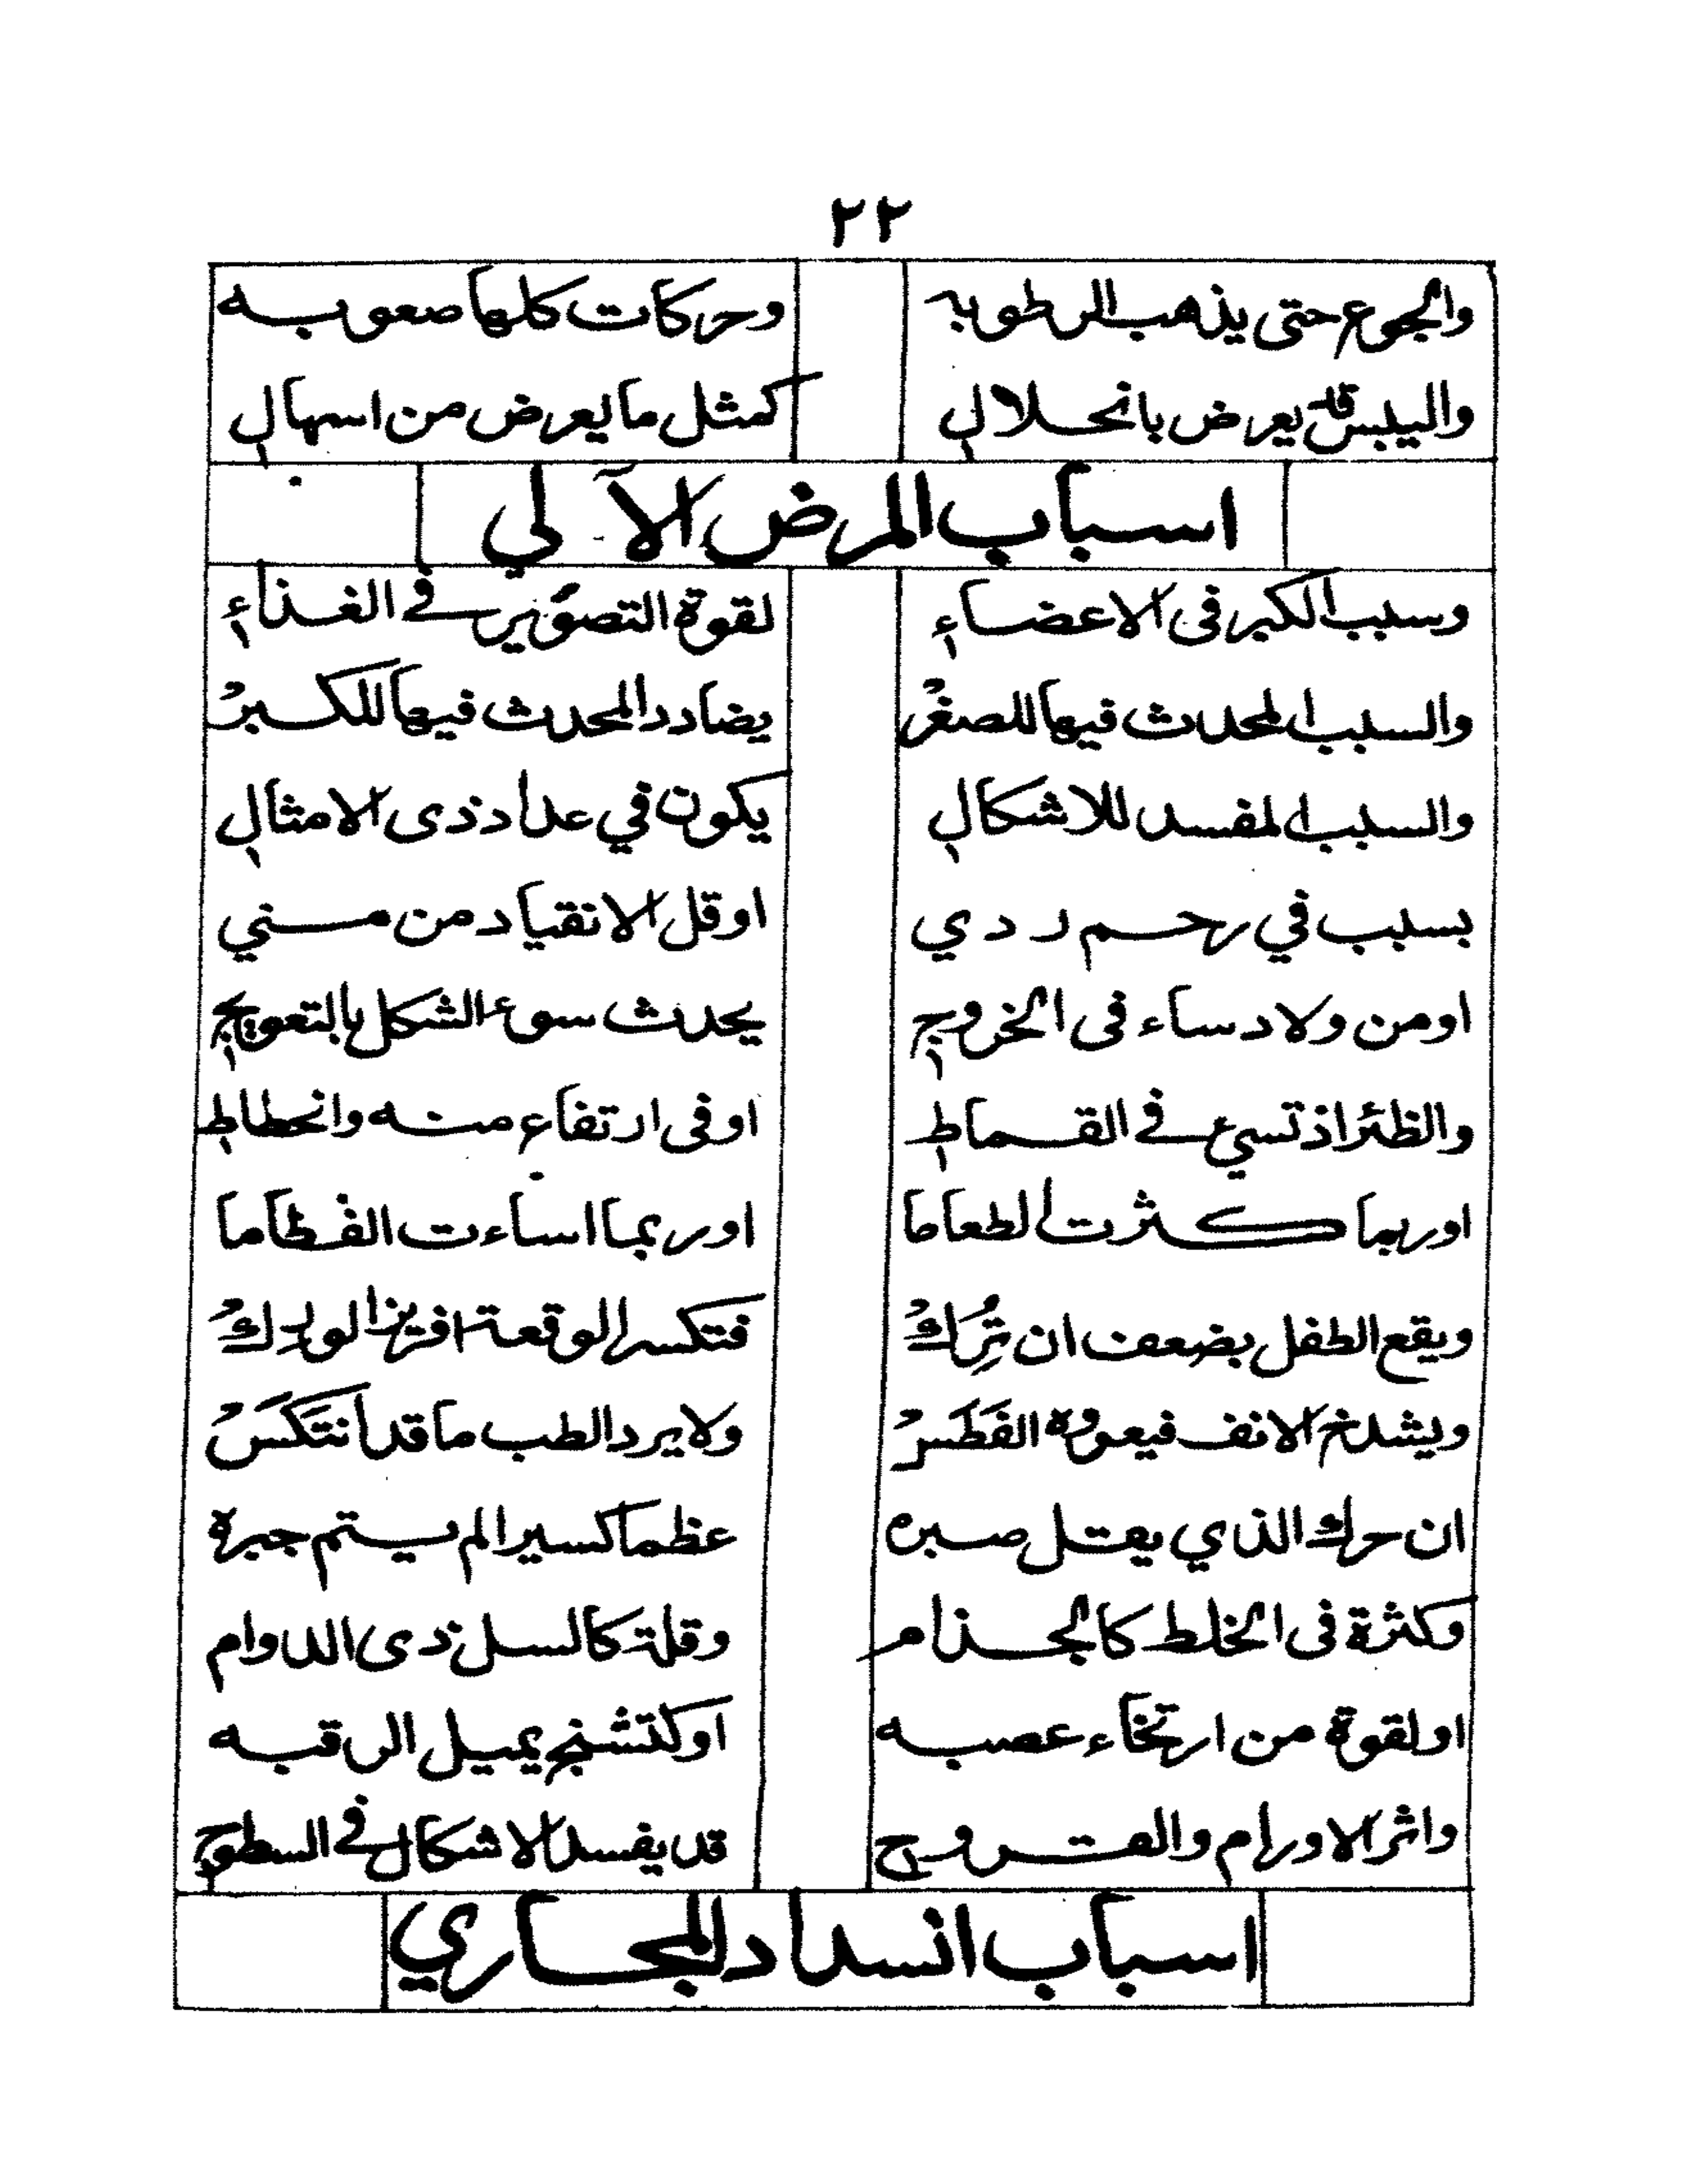 ٢٢
والجوع حتى يذهب الرطوبه وحركات كلها صعوبه
واليبس قد يعرض بانحلال كمثل ما يعرض من اسهال
اسباب المرض الآلي
وسبب الكبر فى الاعضاء لقوة التصوير في الغذاء
والسبب المحدث فيها للصغر يضادد المحدث فيها للكبر
والسبب المفسد للاشكال يكون في عداد ذى الامثال
بسبب في رحم ردي او قل الانقياد من مني
او من ولاد ساء فى الخروج يحدث سوء الشكل بالتعويج
والظئر اذ تسيء في القماط او فى ارتفاع منه وانحطاط
او ربما كثرت الطعاما او ربما اساءت الفطاما
ويقع الطفل بضعف ان تُرِكْ فتكسر الوقعة افريز الورك
ويشدخ الانف فيعروه الفَطَسْ ولا يرد الطب ما قد انتَكَسْ
ان حرك الذي يقل صبره عظما كسيرا لم يستم جبره
وكثرة فى الخلط كالجذام وقلة كالسل ذى الدوام
او لقوة من ارتخاء عصبه او كتشنج يميل الرقبه
واثر الاورام والقروح قد يفسد الاشكال في السطوح
اسباب انسداد المجاري